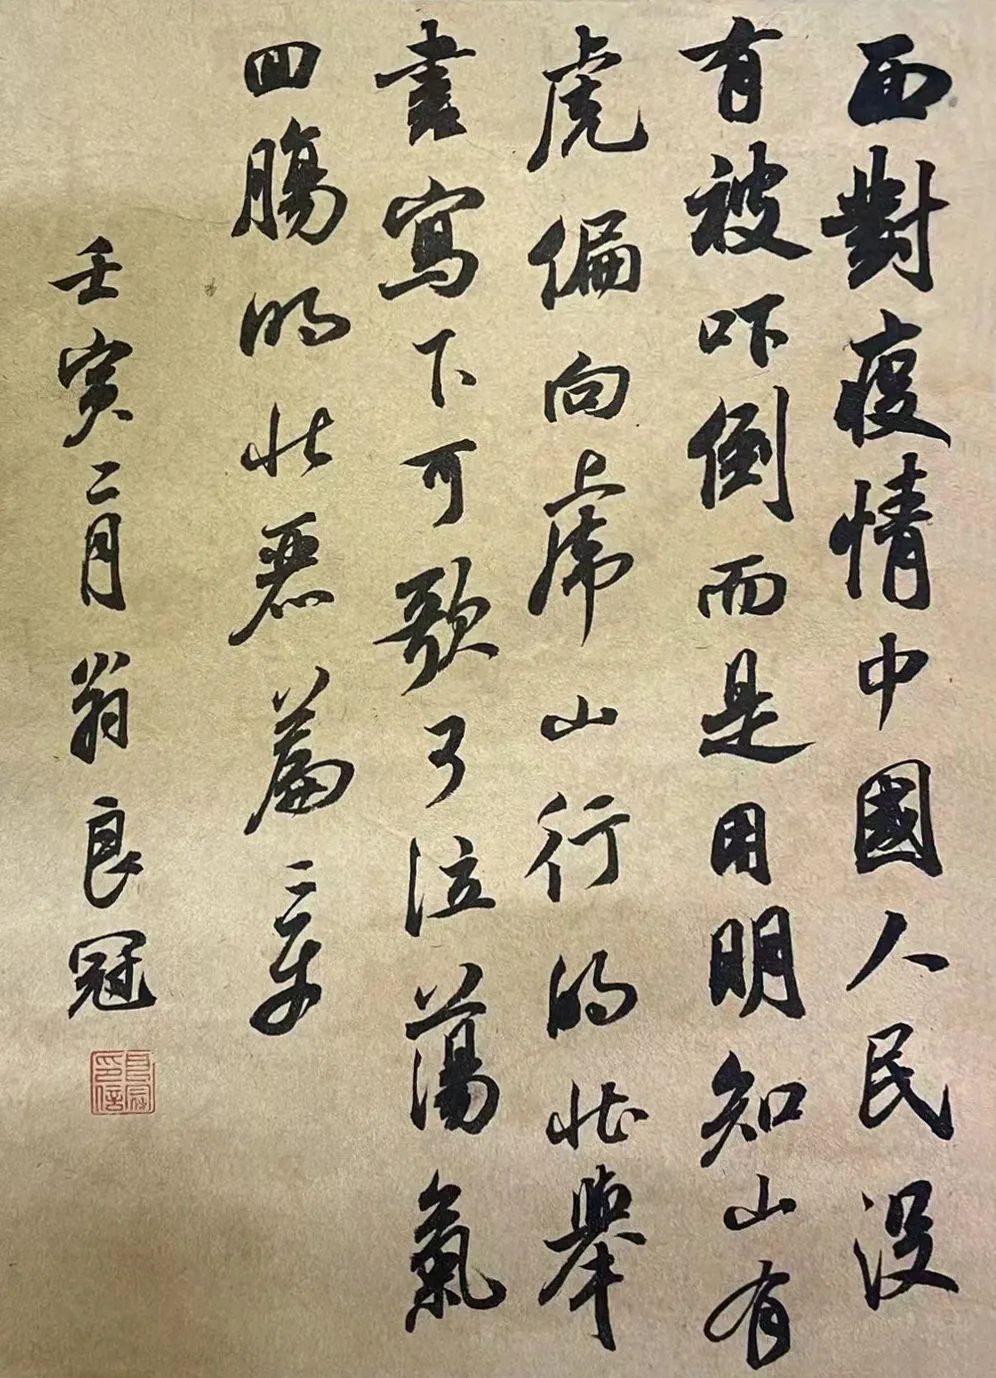 面對疫情中國人民沒
有被吓倒而是用明知山有
虎偏向虎山行的壯舉
書寫下可歌可泣蕩氣
回腸的壯麗篇章
壬寅二月翁良冠
良冠印信